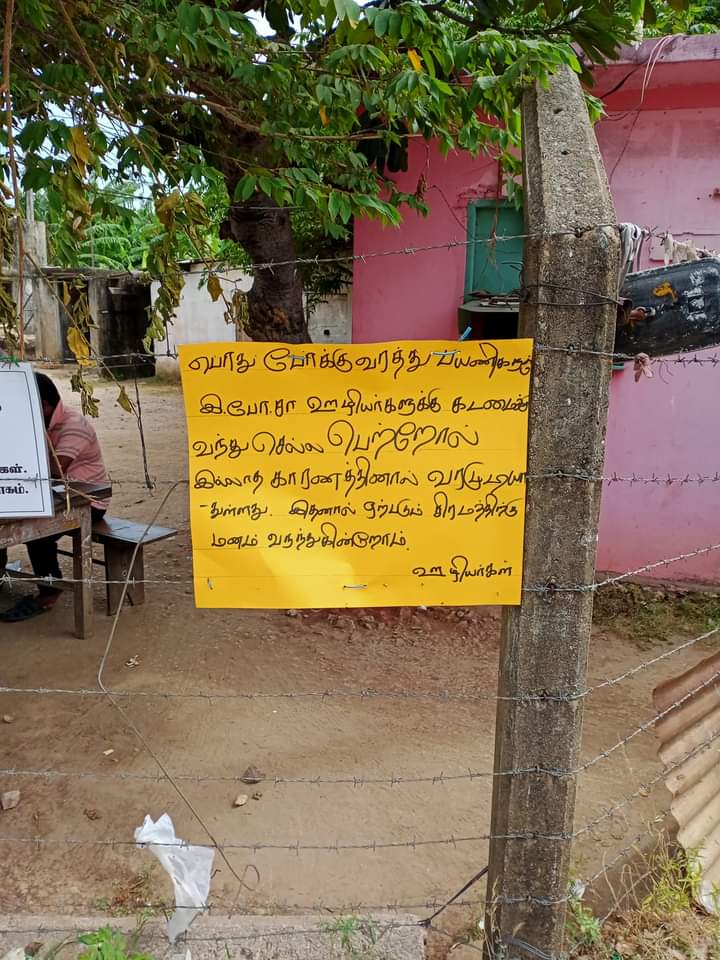 பொது போக்குவரத்து பயணிகளுக்
இ.போ.சா ஊழியர்களுக்கு கடமைக்
வந்து செல்ல பெற்றோல்
இல்லாத காரணத்தினால் வரமுடியா
-துள்ளது. இதனால் ஏற்படும் சிரமத்திற்கு
மனம் வருந்துகின்றோம்.
ஊழியர்கள்
கள்.